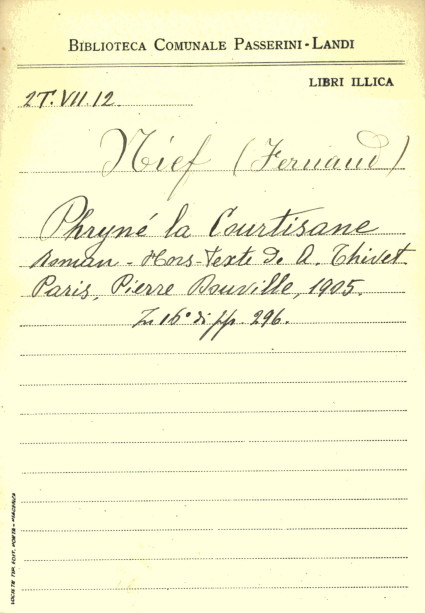 BIBLIOTECA COMUNALE PASSERINI-LANDI
LIBRI ILLICA
2T.VII.12
Nief (Fernand)
Phryné la Courtisane
Roman - Hors-Texte de A. Thivet
Paris, Pierre Douville, 1905.
In 16° di pp. 296.
SOCIETÀ TIP. EDIT. PORTA - PIACENZA